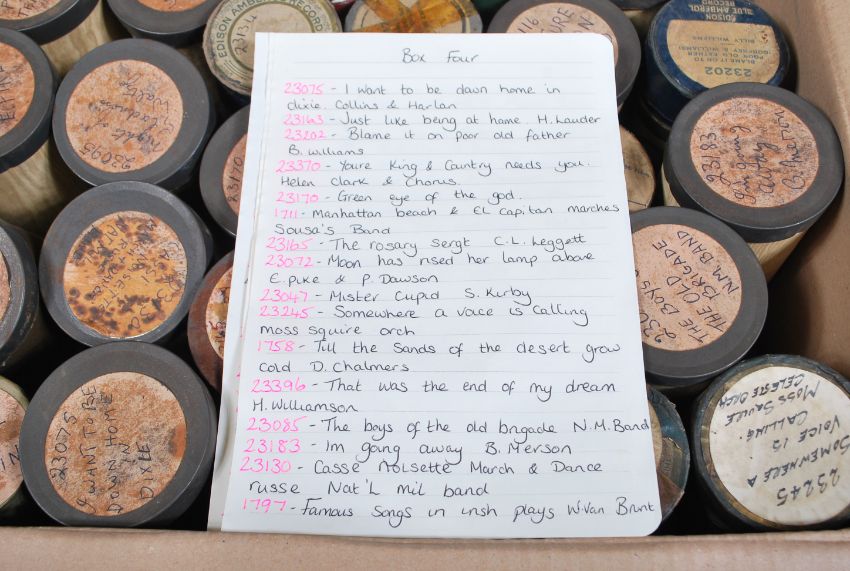 Box Four
23075 - I want to be down home in
dixie. Collins & Harlan
23163 - Just like being at home H. Lauder
23202 - Blame it on poor old father
B. williams
23370 - Youre King & Country needs you.
Helen Clark & Chorus.
23170 - Green eye of the god.
1711 - Manhattan beach & EL Capitan marches
Sousa's Band
23165 - The rosary sergt C.L. Leggett
23072 - Moon has rised her lamp above
E. pike & P. Dawson
23047 - Mister Cupid S. Kirby
23245 - Somewhere a voice is Calling
moss squire orch
1758 - Till the Sands of the desert grow
cold D. Chalmers
23396 - That was the end of my dream
H. Williamson
23085 - The boys of the old brigade N.M. Band
23183 - Im going away B. Merson
23130 - Casse Noisette March & Dance
russe Nat'L mil band
1797 - Famous Songs in irish plays W. Van Brunt
EDISON AMBEROL RECORD
EDISON
BLUE AMBEROL
RECORD
BLAME IT ON TO
POOR OLD FATHER
(GODFREY & WILLIAMS)
BILLY WILLIAMS
23202
23183
Im going
away
B. Merson
THE BOYS OF
THE OLD
BRIGADE
NM BAND
23075
I WANT TO BE
DOWN HOME
IN
DIXIE
23245
SOMEWHERE A
VOICE IS
CALLING.
MOSS SQUIRE
CELESTE ORCH
23095
23170